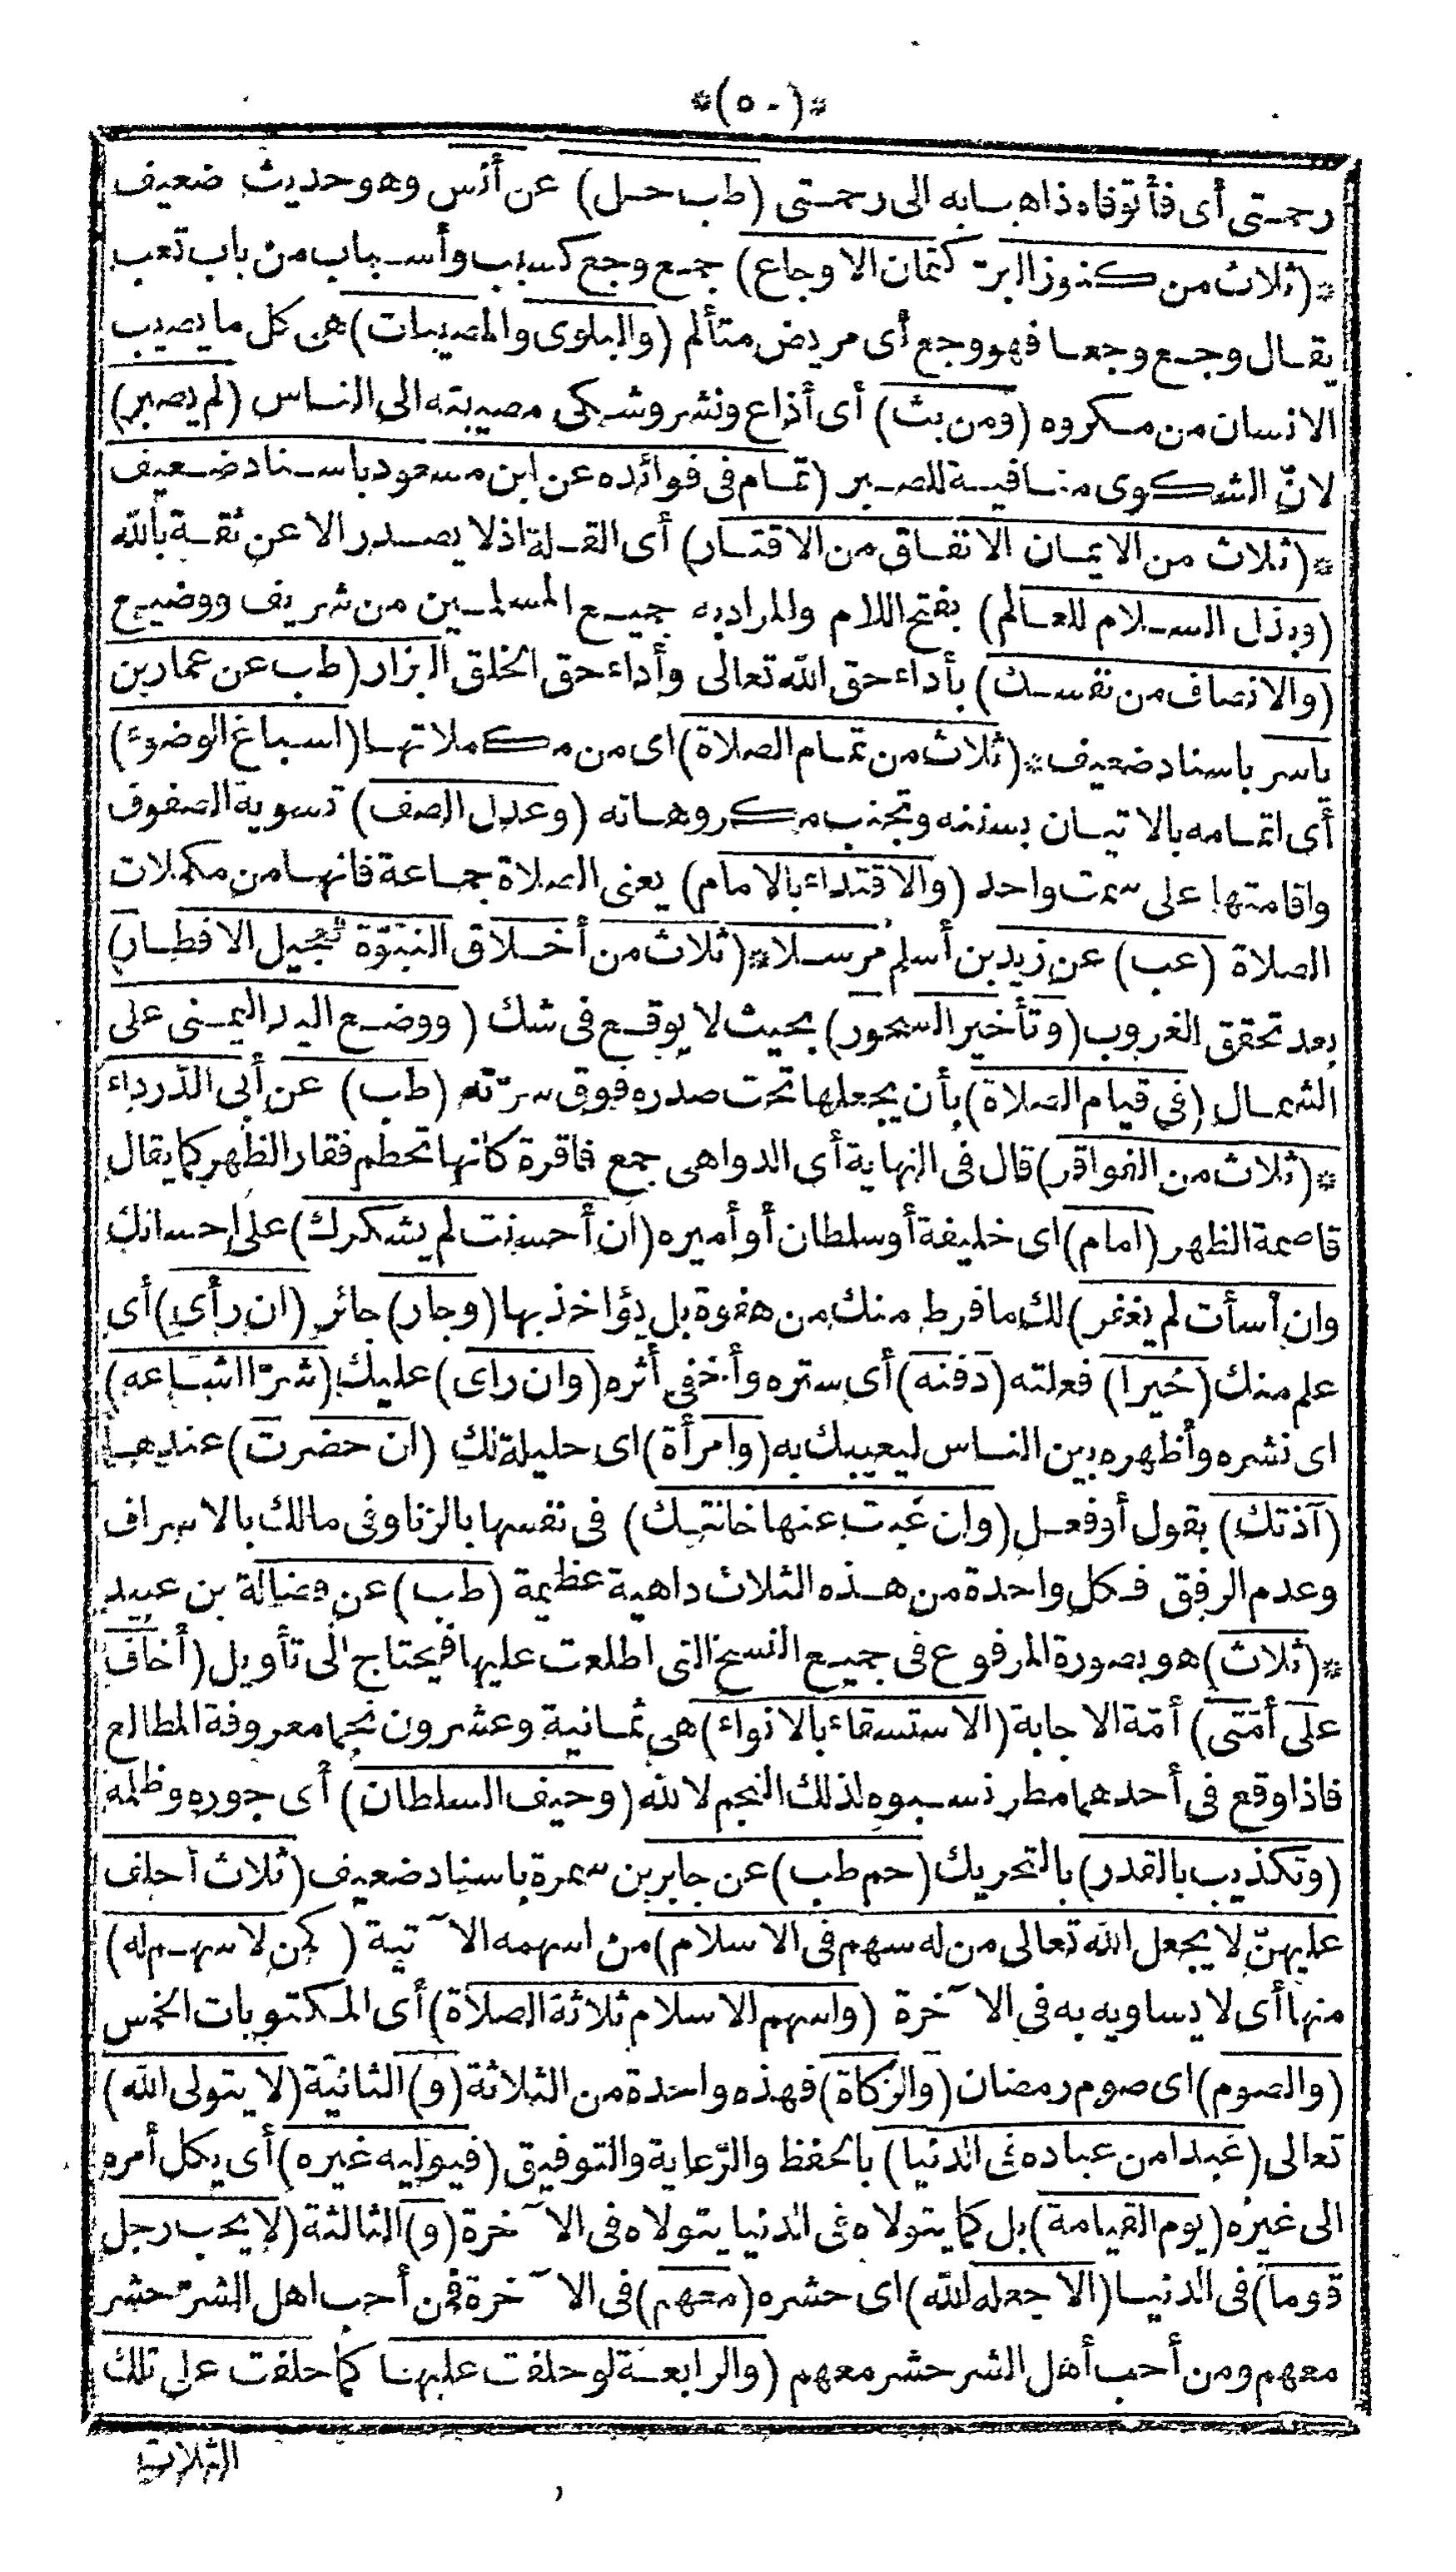 *(٥٠)*
رحمتى أى فأتوفاه ذاهبا به الى رحمتى (طب حل) عن أنس وهو حديث ضعيف
*(ثلاث من كنوز البرّ كتمان الاوجاع) جمع وجع كسبب وأسباب من باب تعب
يقال وجع وجعا فهو وجع أى مريض متألم (والبلوى والمصيبات) هى كل ما يصيب
الانسان من مكروه (ومن بث) أى أذاع ونشر وشكى مصيبته الى الناس (لم يصبر)
لانّ الشكوى منافية للصبر (تمام فى فوائده عن ابن مسعود باسناد ضعيف
*(ثلاث من الايمان الانفاق من الاقتار) أى القلة اذ لا يصدر الا عن ثقة بالله
(وبذل السلام للعالم) بفتح اللام والمراد به جميع المسلمين من شريف ووضيع
(والانصاف من نفسك) بأداء حق الله تعالى وأداء حق الخلق البزار (طب عن عمار بن
ياسر باسناد ضعيف *(ثلاث من تمام الصلاة) اى من مكملاتها (اسباغ الوضوء)
أى اتمامه بالاتيان بسننه وتجنب مكروهاته (وعدل الصف) تسوية الصفوف
واقامتها على سمت واحد (والاقتداء بالامام) يعنى الصلاة جماعة فانها من مكملات
الصلاة (عب) عن زيد بن أسلم مرسلا *(ثلاث من أخلاق النبوّة تعجيل الافطار)
بعد تحقق الغروب (وتأخير السحور) بحيث لا يوقع فى شك (ووضع اليد اليمنى على
الشمال (فى قيام الصلاة) بأن يجعلها تحت صدره فوق سرّته (طب) عن أبى الدّرداء
*(ثلاث من الفواقر) قال فى النهاية أى الدواهى جمع فاقرة كانها تحطم فقار الظهر كما يقال
قاصمة الظهر (امام) اى خليفة أو سلطان أو أميره (ان أحسنت لم يشكرك) على احسانك
وان أسأت لم يغفر) لك ما فرط منك من هفوة بل يؤاخذ بها (وجار) جائر (ان رأى) أى
علم منك (خيرا) فعلته (دفنه) أى ستره وأخفى أثره (وان راى) عليك (شرّا اشاعه)
اى نشره وأظهره بين الناس ليعيبك به (وامرأة) اى حليلة لك (ان حضرت) عندها
(آذتك) بقول أو فعل (وان غبت عنها خانتك) فى نفسها بالزنا وفى مالك بالاسراف
وعدم الرفق فكل واحدة من هذه الثلاث داهية عظيمة (طب) عن فضالة بن عبيد
*(ثلاث) هو بصورة المرفوع فى جميع النسخ التى اطلعت عليها فيحتاج الى تأويل (أخاف
على أمّتى) أمّة الاجابة (الاستسقاء بالانواء) هى ثمانية وعشرون نجما معروفة المطالع
فاذا وقع فى أحدها مطر نسبوه لذلك النجم لا لله (وحيف السلطان) أى جوره وظلمه
(وتكذيب بالقدر) بالتحريك (حم طب) عن جابر بن سمرة باسناد ضعيف (ثلاث أحلف
عليهنّ لا يجعل الله تعالى من له سهم فى الاسلام) من اسهمه الآتية (كمن لا سهم له)
منها أى لا يساويه به فى الآخرة (واسهم الاسلام ثلاثة الصلاة) أى المكتوبات الخمس
(والصوم) اى صوم رمضان (والزكاة) فهذه واحدة من الثلاثة (و) الثانية (لا يتولى الله)
تعالى (عبدا من عباده فى الدنيا) بالحفظ والرّعاية والتوفيق (فيوليه غيره) أى يكل أمره
الى غيره (يوم القيامة) بل كما يتولاه فى الدنيا يتولاه فى الآخرة (و) الثالثة (لا يحب رجل
قوما) فى الدنيا (الا جعله الله) اى حشره (معهم) فى الآخرة فمن أحب اهل الشرّ حشر
معهم ومن أحب أهل الشر حشر معهم (والرابعة لو حلفت عليها كما حلفت على تلك
الثلاث